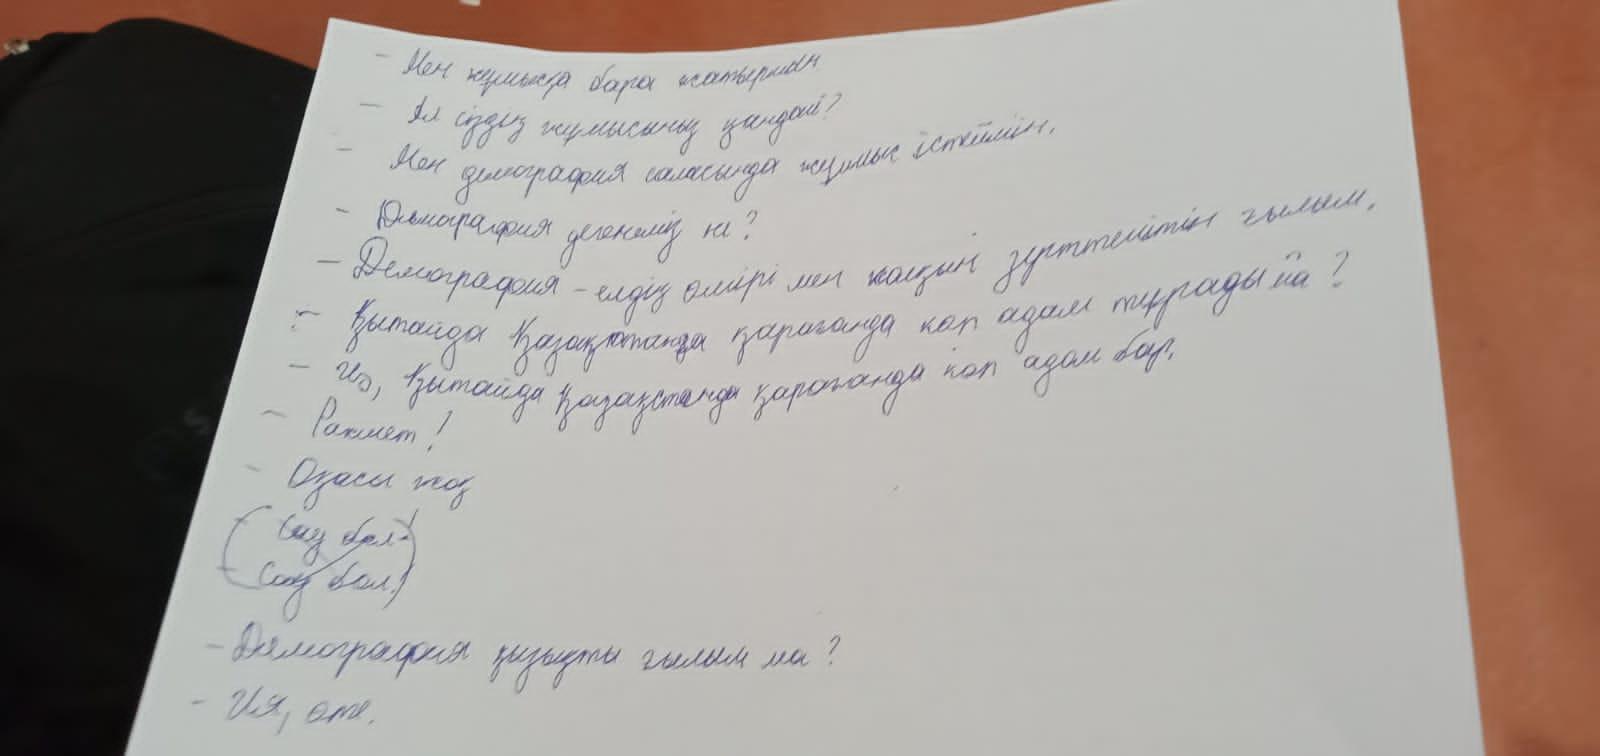 - Мен жұмысқа бара жатырмын
- Ал сіздің жұмысыңыз қандай?
- Мен демография саласында жұмыс істеймін.
- Демография дегеніміз не?
- Демография - елдің өмірі мен халқын зерттейтін ғылым.
- Қытайда Қазақстанда қарағанда көп адам тұрады ма?
- Иә, Қытайда Қазақстанда қарағанда көп адам бар.
- Рахмет!
- Оқасы жоқ
- Сау бол!
- Сау бол!
- Демография қызықты ғылым ма?
- Ия, өте.